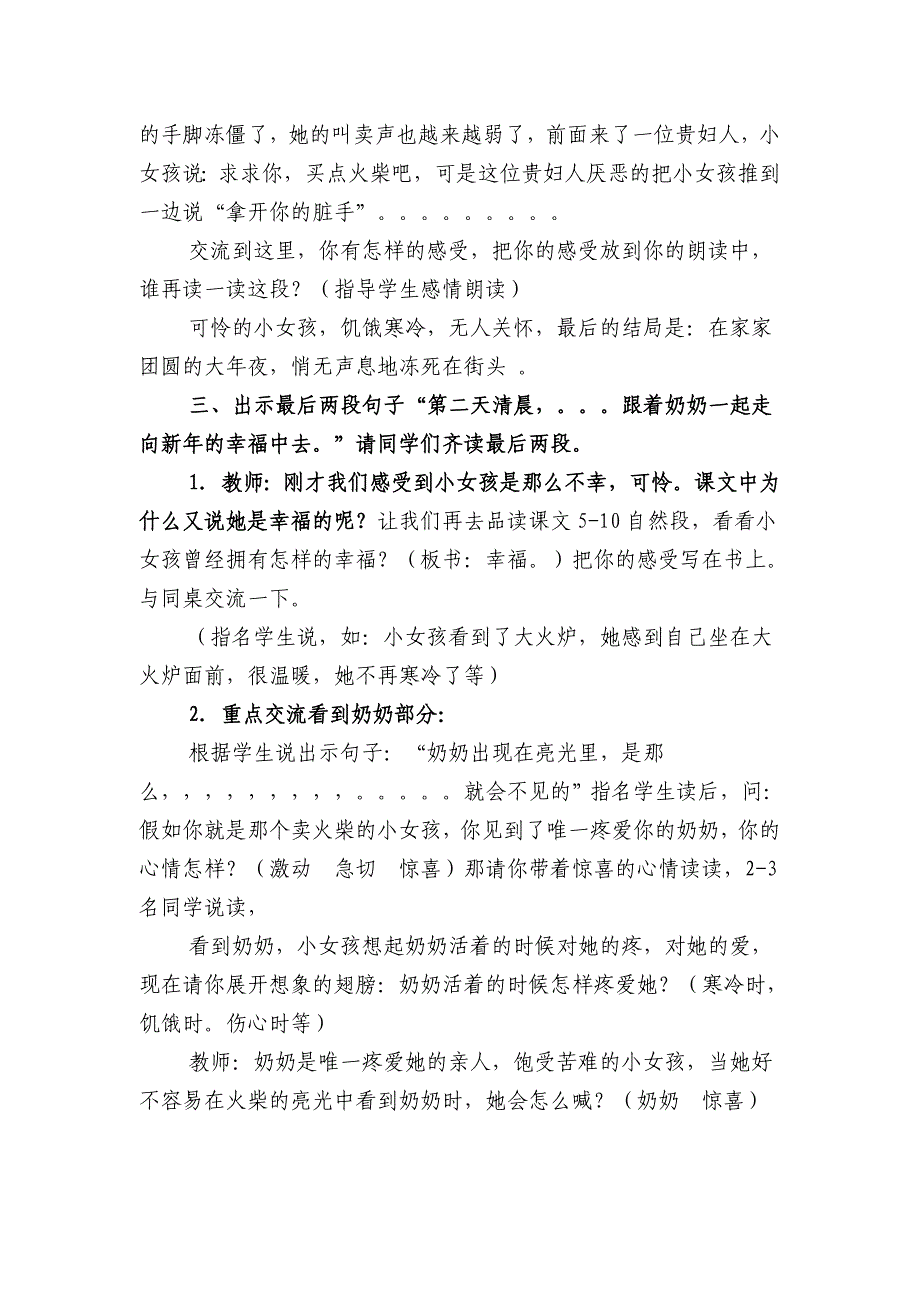 的手脚冻僵了，她的叫卖声也越来越弱了，前面来了一位贵妇人，小
女孩说：求求你，买点火柴吧，可是这位贵妇人厌恶的把小女孩推到
一边说“拿开你的脏手”。。。。。。。。。
交流到这里，你有怎样的感受，把你的感受放到你的朗读中，
谁再读一读这段？（指导学生感情朗读）
可怜的小女孩，饥饿寒冷，无人关怀，最后的结局是：在家家
团圆的大年夜，悄无声息地冻死在街头 。
三、出示最后两段句子“第二天清晨，。。。跟着奶奶一起走
向新年的幸福中去。”请同学们齐读最后两段。
1．教师：刚才我们感受到小女孩是那么不幸，可怜。课文中为
什么又说她是幸福的呢？让我们再去品读课文 5-10 自然段，看看小
女孩曾经拥有怎样的幸福？（板书：幸福。）把你的感受写在书上。
与同桌交流一下。
（指名学生说，如：小女孩看到了大火炉，她感到自己坐在大
火炉面前，很温暖，她不再寒冷了等）
2．重点交流看到奶奶部分：
根据学生说出示句子：“奶奶出现在亮光里，是那
么，，，，，，，，，。。。。。就会不见的”指名学生读后，问：
假如你就是那个卖火柴的小女孩，你见到了唯一疼爱你的奶奶，你的
心情怎样？（激动　急切　惊喜）那请你带着惊喜的心情读读，2-3
名同学说读，
看到奶奶，小女孩想起奶奶活着的时候对她的疼，对她的爱，
现在请你展开想象的翅膀：奶奶活着的时候怎样疼爱她？（寒冷时，
饥饿时。伤心时等）
教师：奶奶是唯一疼爱她的亲人，饱受苦难的小女孩，当她好
不容易在火柴的亮光中看到奶奶时，她会怎么喊？（奶奶　惊喜）